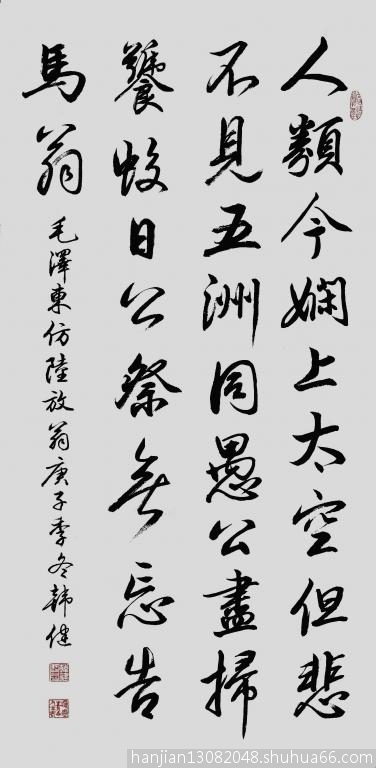 人類今嫻上太空但悲
不見五洲同愚公盡掃
饕蚊日公祭無忘告
馬翁
毛澤東仿陸放翁庚子季冬韓健
hanjian13082048.shuhua66.com